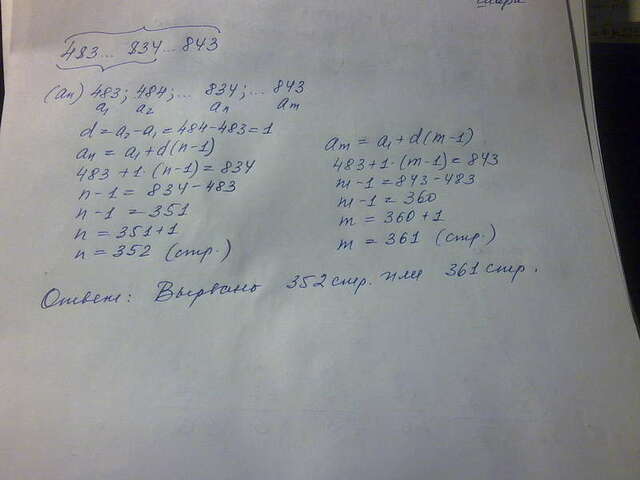 483... 834... 843
(an) 483; 484; ... 834; ... 843
a1 a2 an am
d = a2 - a1 = 484 - 483 = 1
an = a1 + d(n-1)
483 + 1·(n-1) = 834
n - 1 = 834 - 483
n - 1 = 351
n = 351 + 1
n = 352 (стр.)
am = a1 + d(m-1)
483 + 1·(m-1) = 843
m - 1 = 843 - 483
m - 1 = 360
m = 360 + 1
m = 361 (стр.)
Ответ: Вырвано 352 стр. или 361 стр.